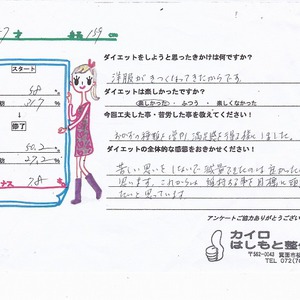 7 才 159 cm
スタート
ダイエットをしようと思ったきかけは何ですか?
洋服がきつくなってきたからです。
5.8
31.7
ダイエットは楽しかったですか?
楽しかった ・ ふつう ・ 楽しくなかった
今回工夫した事・苦労した事を教えてください!
終了
おかずの種類を増やし満足感を得る様にしました。
50.2
27.2
ダイエットの全体的な感想をおきかせください!
苦しい思いをしないで減量できたのは良かったと
ナス 7.8 キ
思います。これからも維持する事を目標に頑
たいと思っています
アンケートご協力ありがとうござい
カイロ
はしもと整
〒562-0043 箕面市桜
TEL 072(7